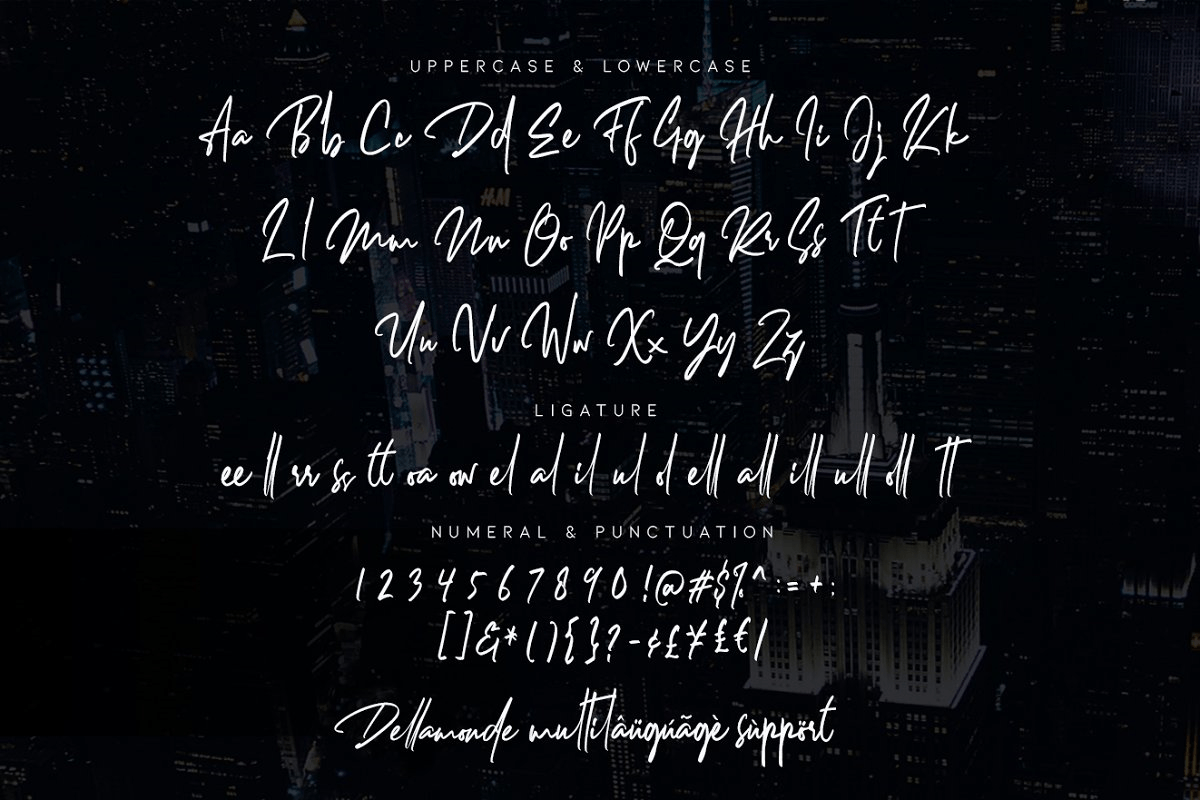 UPPERCASE & LOWERCASE
Aa Bb Cc Dd Ee Ff Gg Hh Ii Jj Kk
Ll Mm Nn Oo Pp Qq Rr Ss Tt T
Uu Vv Ww Xx Yy Zz
LIGATURE
ee ll rr ss tt oa ow el al il ul ol ell all ill ull oll tt
NUMERAL & PUNCTUATION
1 2 3 4 5 6 7 8 9 0 ! @ # $ % ^ : = + ;
[ ] & * ( ) { } ? - ¢ £ ¥ £ € /
Dellamonde multilâügúãgè sùppört
H&M